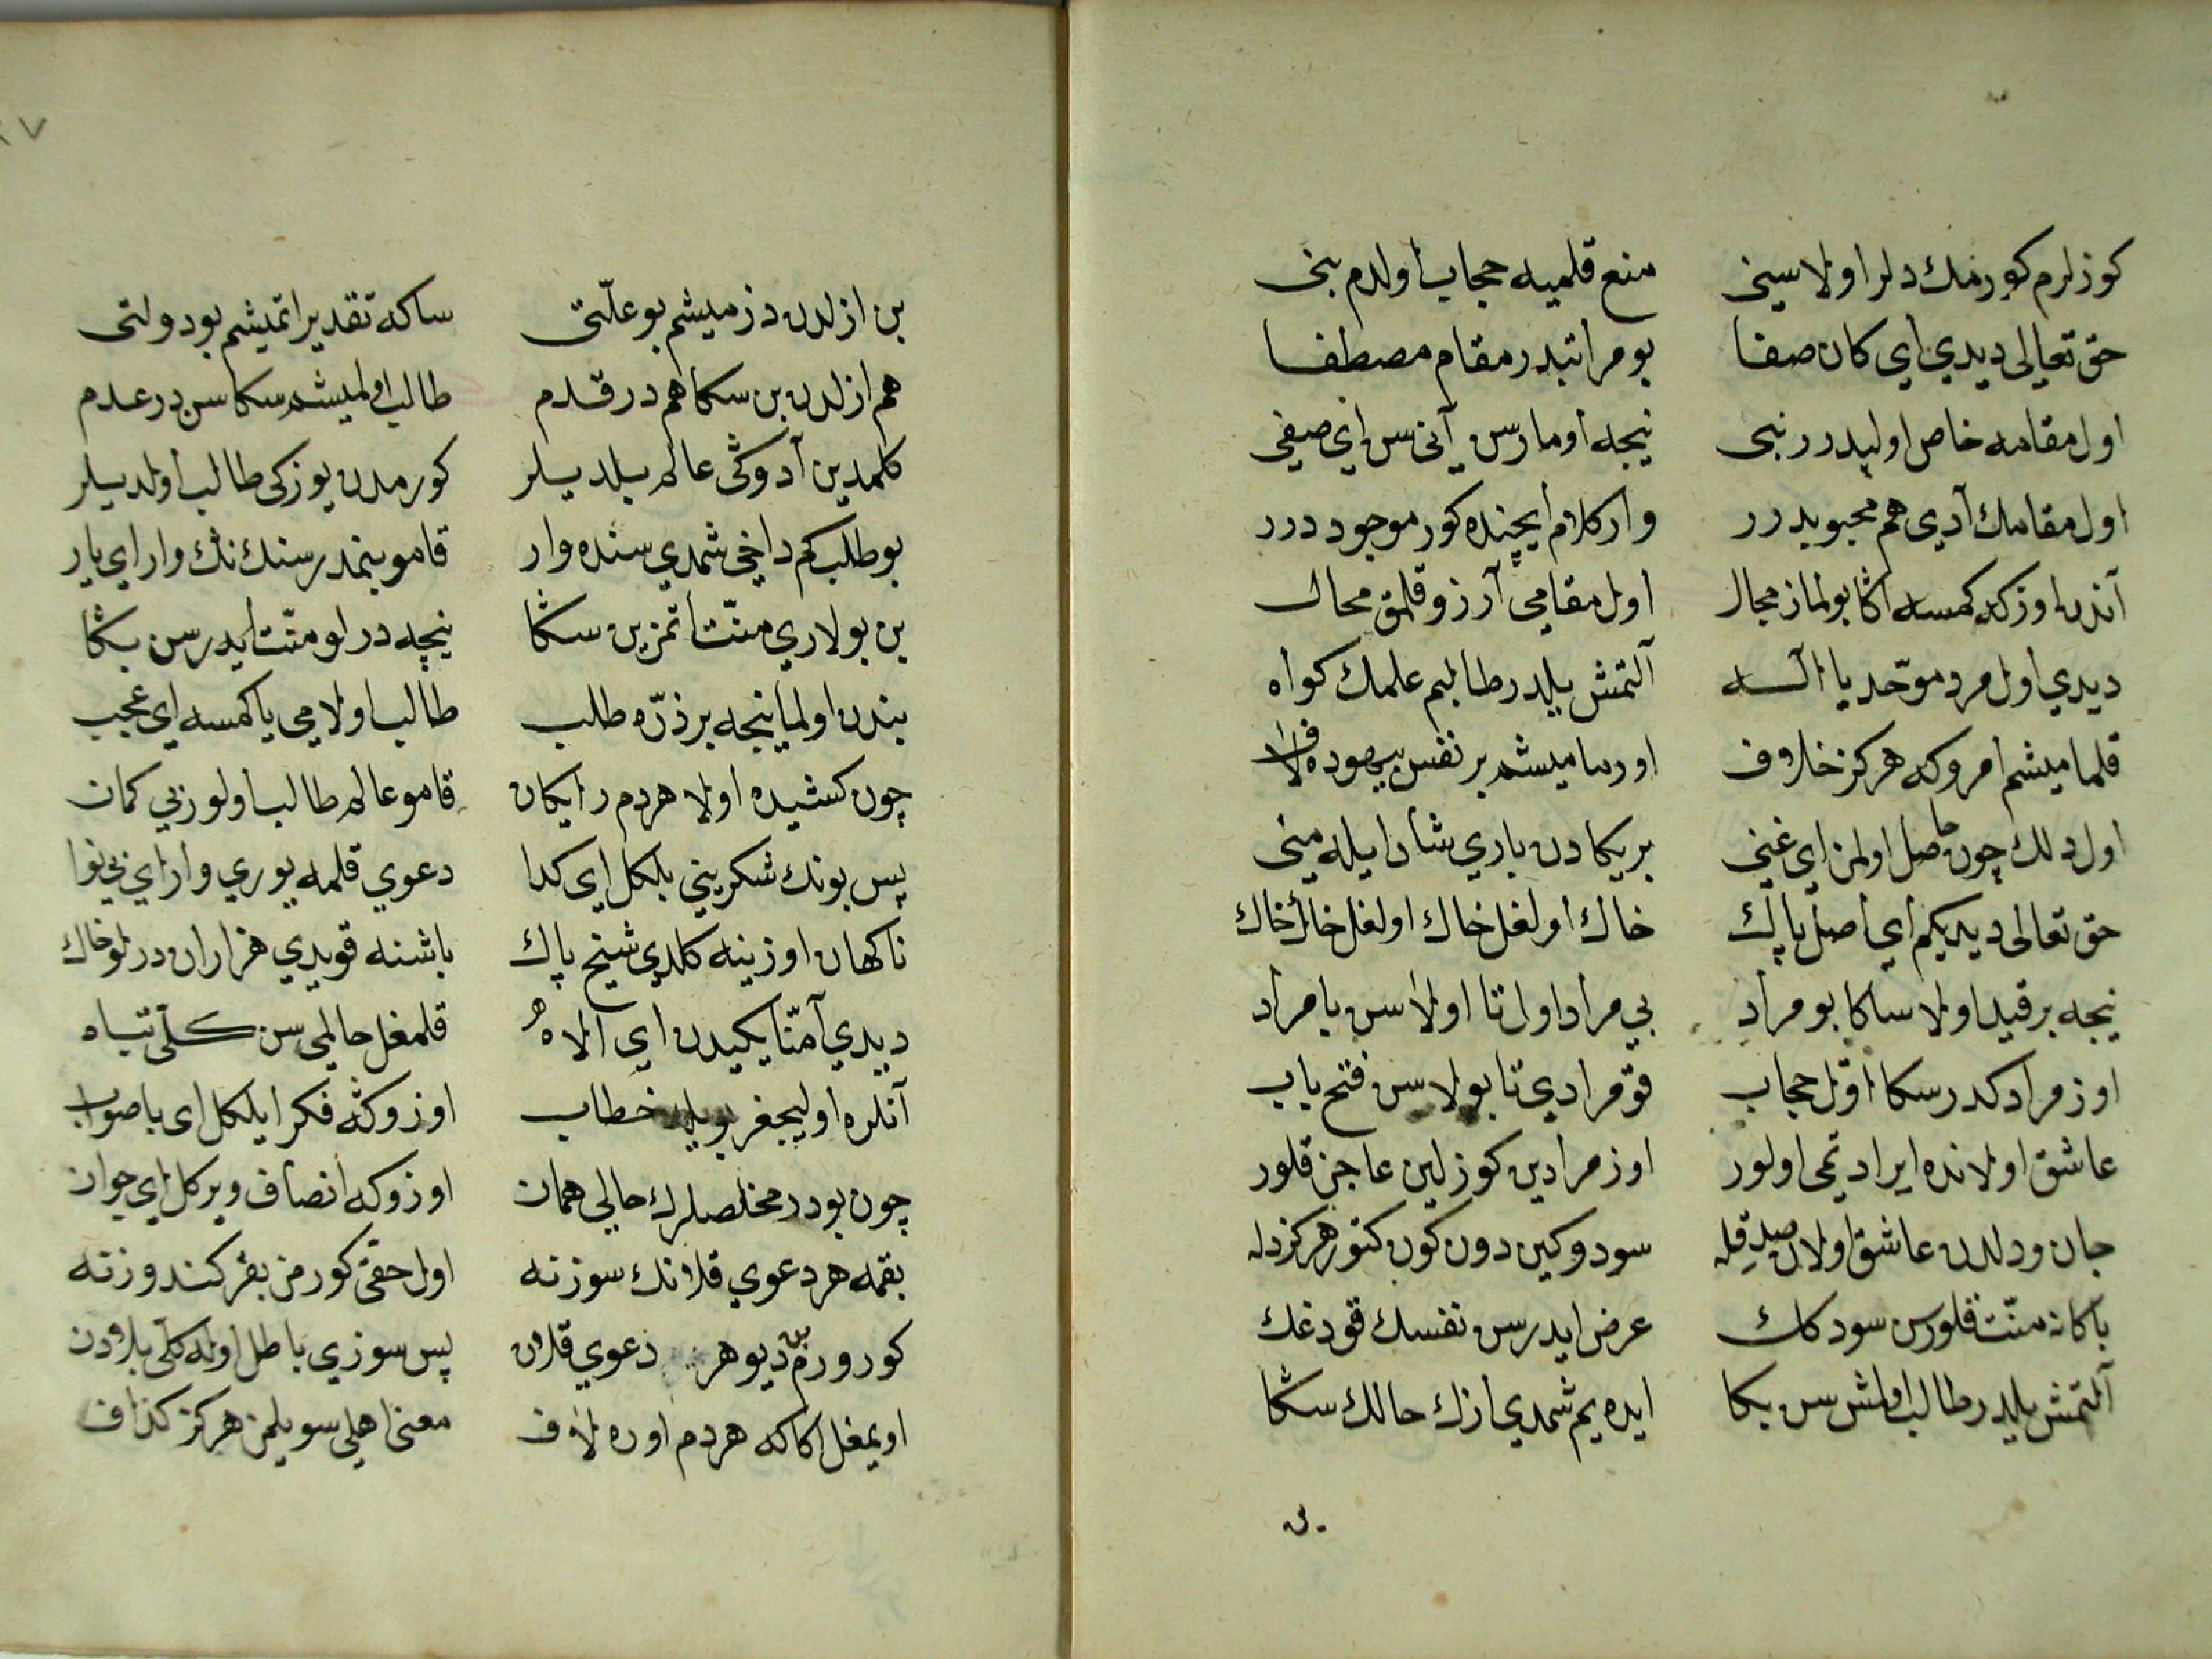 كوزلرم كورمك دلر اولا سيني    منع قلميه حجاب اولدم بني
حق تعالى ديدي اي كان صفا    بو مراتبدر مقام مصطفا
اول مقامه خاص اولبدرر نبى    نيجه اومارسن آني سن اي صفي
اول مقامك آدي هم محبوبدرر    وار كلام ايچنده كور موجوددرر
آندن اوزكه كمسه اكا بولماز مجال    اول مقامي آرزو قلمق محال
ديدي اول مرد موحّد يا اله    آلتمش يلدر طالبم علمك كواه
قلماميشم امروكه هركز خلاف    اورماميشم بر نفس بيهوده لاف
اول دلك چون حاصل اولمز اي غني    بريكادن باري شاد ايله مني
حق تعالى ديديكم اي اصل پاك    خاك اولغل خاك اولغل خاك خاك
نيجه بر قيد اولا ساكا بو مراد    بي مراد اول تا اولاسن با مراد
اوز مرادكدر سكا اوّل حجاب    قو مرادي تا بولاسن فتح باب
عاشق اولانده ايراد تمى اولور    اوز مرادين كوزلين عاجز قلور
جان ودلدن عاشق اولان صدقله    سودوكين دون كون كتور هركز دله
باكا نه منّت قلورسن سودكك    عرض ايدرسن نفسك قودغك
آلتمش يلدر طالب اولمش سن بكا    ايده يم شمدي ازك حالك سكا
بن
بن ازلدن دزميشم بو علّتى    ساكه تقدير اتميشم بو دولتى
هم ازلدن بن سكا هم در قدم    طالب اولميشم سكا سن در عدم
كلمدين آدوكى عالم بلديلر    كورمدن يوزكى طالب اولديلر
بو طلب كم داخي شمدي سنده وار    قامو بنمدر سنك نك وار اي يار
بن بولاري منّت اتمزين سكا    نيچه درلو منّت ايدرسن بكا
بندن اولماينجه بر ذرّه طلب    طالب اولامي يا كمسه اي عجب
چون كشيده اولا هردم رايكان    قامو عالم طالب اولور بي كمان
پس بونك شكريني بلكل اي كدا    دعوي قلمه يوري وار اي بي نوا
ناكهان اوزينه كلدي شيخ پاك    باشنه قويدي هزاران درلو خاك
ديدي آمنّا يكيدن اي الاه    قلمغل حالمي سن كلّى تباه
آنلره اوليجغز بويله خطاب    اوزوكه فكر ايلكل اى با صواب
چون بودر مخلصلرك حالي همان    اوزوكه انصاف ويركل اي جوان
بقمه هر دعوي قلانك سوزنه    اول حقى كورمز بقر كندوزنه
كورورم بن ديو هر دعوي قلان    پس سوزي باطل اوله كلّى يلان
اويمغل اكا كه هردم اوره لاف    معنى اهلى سويلمز هركز كذاف